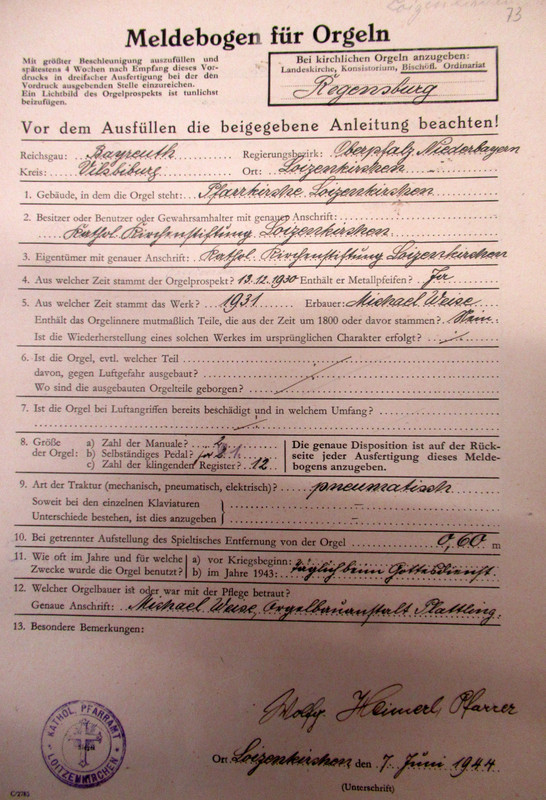 73
Meldebogen für Orgeln
Mit größter Beschleunigung auszufüllen und
spätestens 4 Wochen nach Empfang dieses Vor-
drucks in dreifacher Ausfertigung bei der den
Vordruck ausgebenden Stelle einzureichen.
Ein Lichtbild des Orgelprospekts ist tunlichst
beizufügen.
Bei kirchlichen Orgeln anzugeben:
Landeskirche, Konsistorium, Bischöfl. Ordinariat
Regensburg
Vor dem Ausfüllen die beigegebene Anleitung beachten!
Reichsgau: Bayreuth Regierungsbezirk: Oberpfalz Niederbayern
Kreis: Vilsbiburg Ort: Loizenkirchen
1. Gebäude, in dem die Orgel steht: Pfarrkirche Loizenkirchen
2. Besitzer oder Benutzer oder Gewahrsamhalter mit genauer Anschrift:
Kathol. Kirchenstiftung Loizenkirchen
3. Eigentümer mit genauer Anschrift: Kathol. Kirchenstiftung Loizenkirchen
4. Aus welcher Zeit stammt der Orgelprospekt? 13.12.1930 Enthält er Metallpfeifen? Ja
5. Aus welcher Zeit stammt das Werk? 1931 Erbauer: Michael Weise
Enthält das Orgelinnere mutmaßlich Teile, die aus der Zeit um 1800 oder davor stammen? Nein
Ist die Wiederherstellung eines solchen Werkes im ursprünglichen Charakter erfolgt?
6. Ist die Orgel, evtl. welcher Teil
davon, gegen Luftgefahr ausgebaut?
Wo sind die ausgebauten Orgelteile geborgen?
7. Ist die Orgel bei Luftangriffen bereits beschädigt und in welchem Umfang?
8. Größe der Orgel: a) Zahl der Manuale? 2
b) Selbständiges Pedal?
c) Zahl der klingenden Register? 12
Die genaue Disposition ist auf der Rück-
seite jeder Ausfertigung dieses Melde-
bogens anzugeben.
9. Art der Traktur (mechanisch, pneumatisch, elektrisch)? pneumatisch
Soweit bei den einzelnen Klaviaturen
Unterschiede bestehen, ist dies anzugeben
10. Bei getrennter Aufstellung des Spieltisches Entfernung von der Orgel 0,60 m
11. Wie oft im Jahre und für welche Zwecke wurde die Orgel benutzt?
a) vor Kriegsbeginn: täglich beim Gottesdienst.
b) im Jahre 1943:
12. Welcher Orgelbauer ist oder war mit der Pflege betraut?
Genaue Anschrift: Michael Weise, Orgelbauanstalt Plattling.
13. Besondere Bemerkungen:
Wolfg. Heimerl, Pfarrer
Ort Loizenkirchen den 7. Juni 1944
(Unterschrift)
KATHOL. PFARRAMT
LOITZENKIRCHEN
C/2783